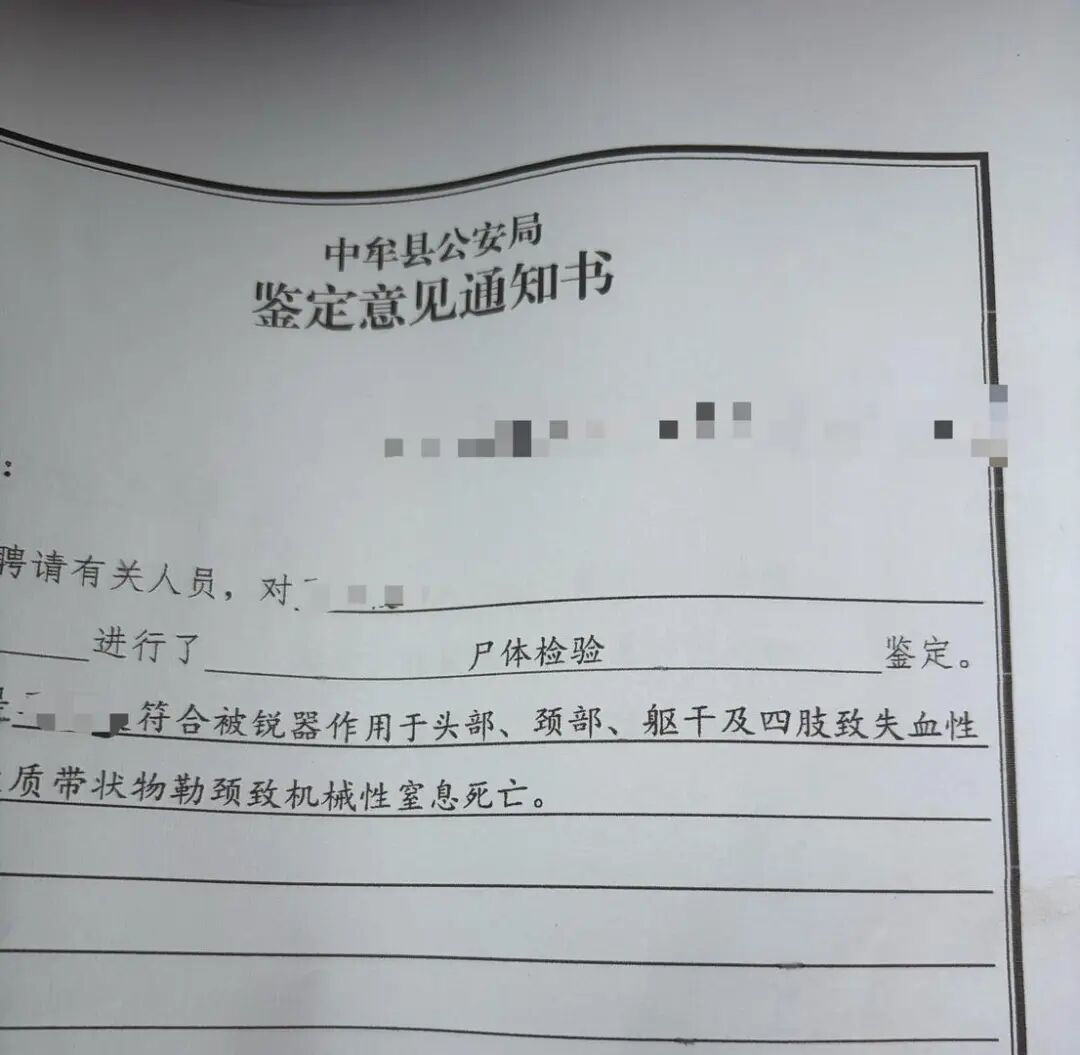 中牟县公安局
鉴定意见通知书
：
聘请有关人员，对
进行了 尸体检验 鉴定。
符合被锐器作用于头部、颈部、躯干及四肢致失血性
质带状物勒颈致机械性窒息死亡。